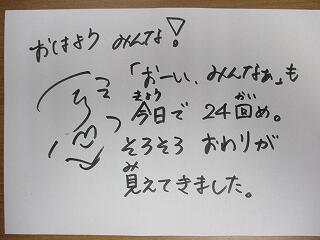 おはよう みんな!
「おーい、みんなぁ」も
今日で 24回め。
そろそろ おわりが
見えてきました。